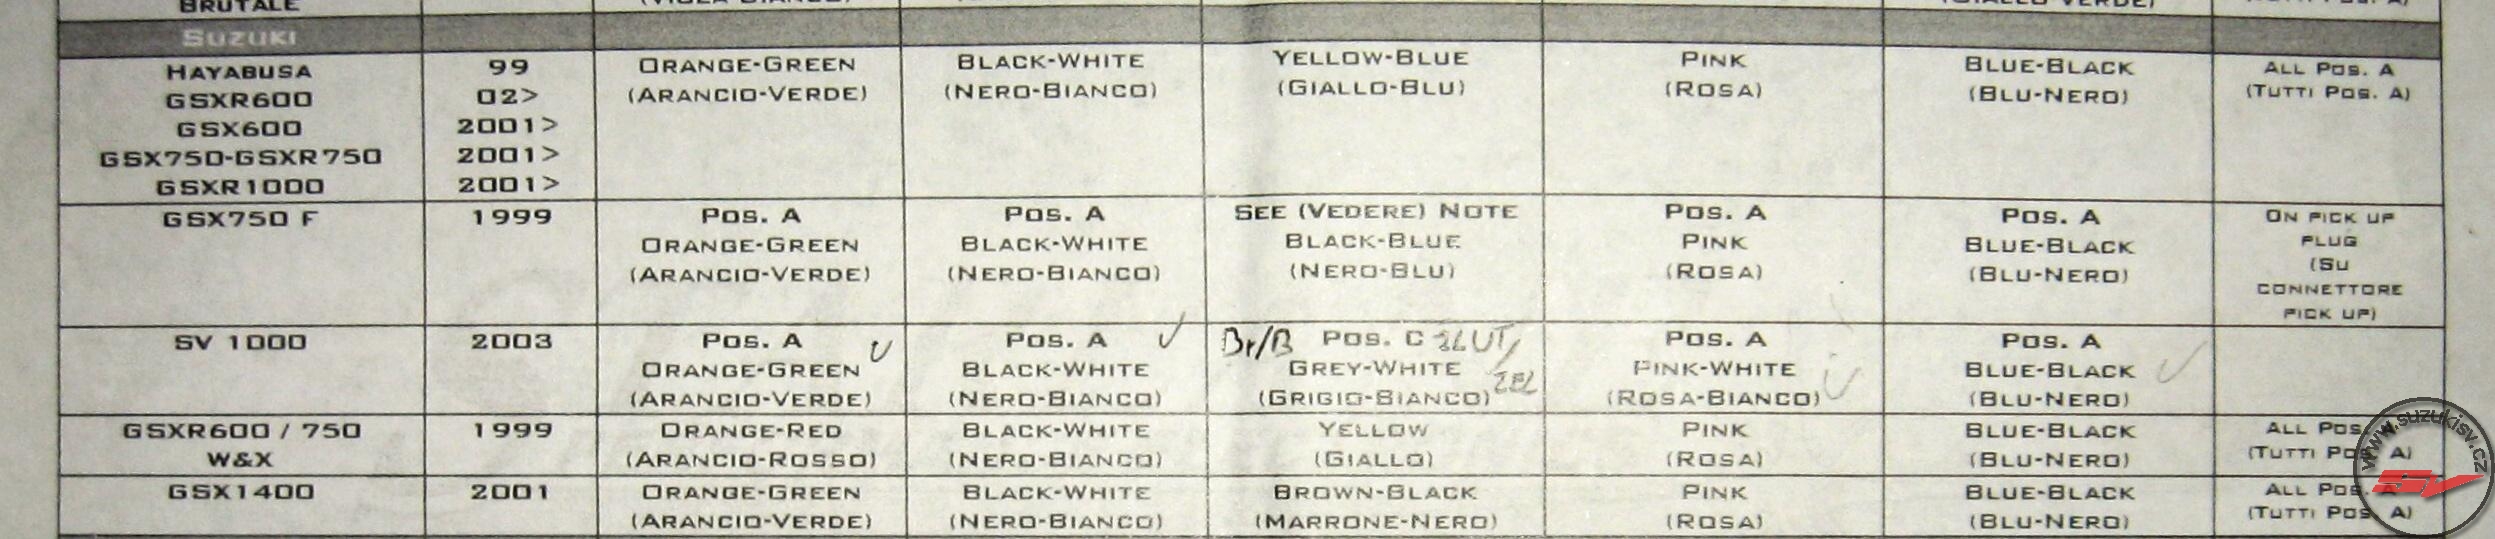 BRUTALE
SUZUKI
HAYABUSA 99 ORANGE-GREEN BLACK-WHITE YELLOW-BLUE PINK BLUE-BLACK ALL POS. A
GSXR600 02> (ARANCIO-VERDE) (NERO-BIANCO) (GIALLO-BLU) (ROSA) (BLU-NERO) (TUTTI POS. A)
GSX600 2001>
GSX750-GSXR750 2001>
GSXR1000 2001>
GSX750 F 1999 POS. A POS. A SEE (VEDERE) NOTE POS. A POS. A ON PICK UP
ORANGE-GREEN BLACK-WHITE BLACK-BLUE PINK BLUE-BLACK PLUG
(ARANCIO-VERDE) (NERO-BIANCO) (NERO-BLU) (ROSA) (BLU-NERO) (SU
CONNETTORE
PICK UP)
SV 1000 2003 POS. A POS. A Br/B POS. C ZLUT/ POS. A POS. A
ORANGE-GREEN BLACK-WHITE GREY-WHITE ZEL PINK-WHITE BLUE-BLACK
(ARANCIO-VERDE) (NERO-BIANCO) (GRIGIO-BIANCO) (ROSA-BIANCO) (BLU-NERO)
GSXR600 / 750 1999 ORANGE-RED BLACK-WHITE YELLOW PINK BLUE-BLACK ALL POS. A
W&X (ARANCIO-ROSSO) (NERO-BIANCO) (GIALLO) (ROSA) (BLU-NERO) (TUTTI POS. A)
GSX1400 2001 ORANGE-GREEN BLACK-WHITE BROWN-BLACK PINK BLUE-BLACK ALL POS. A
(ARANCIO-VERDE) (NERO-BIANCO) (MARRONE-NERO) (ROSA) (BLU-NERO) (TUTTI POS. A)
www.suzukisv.cz
SV